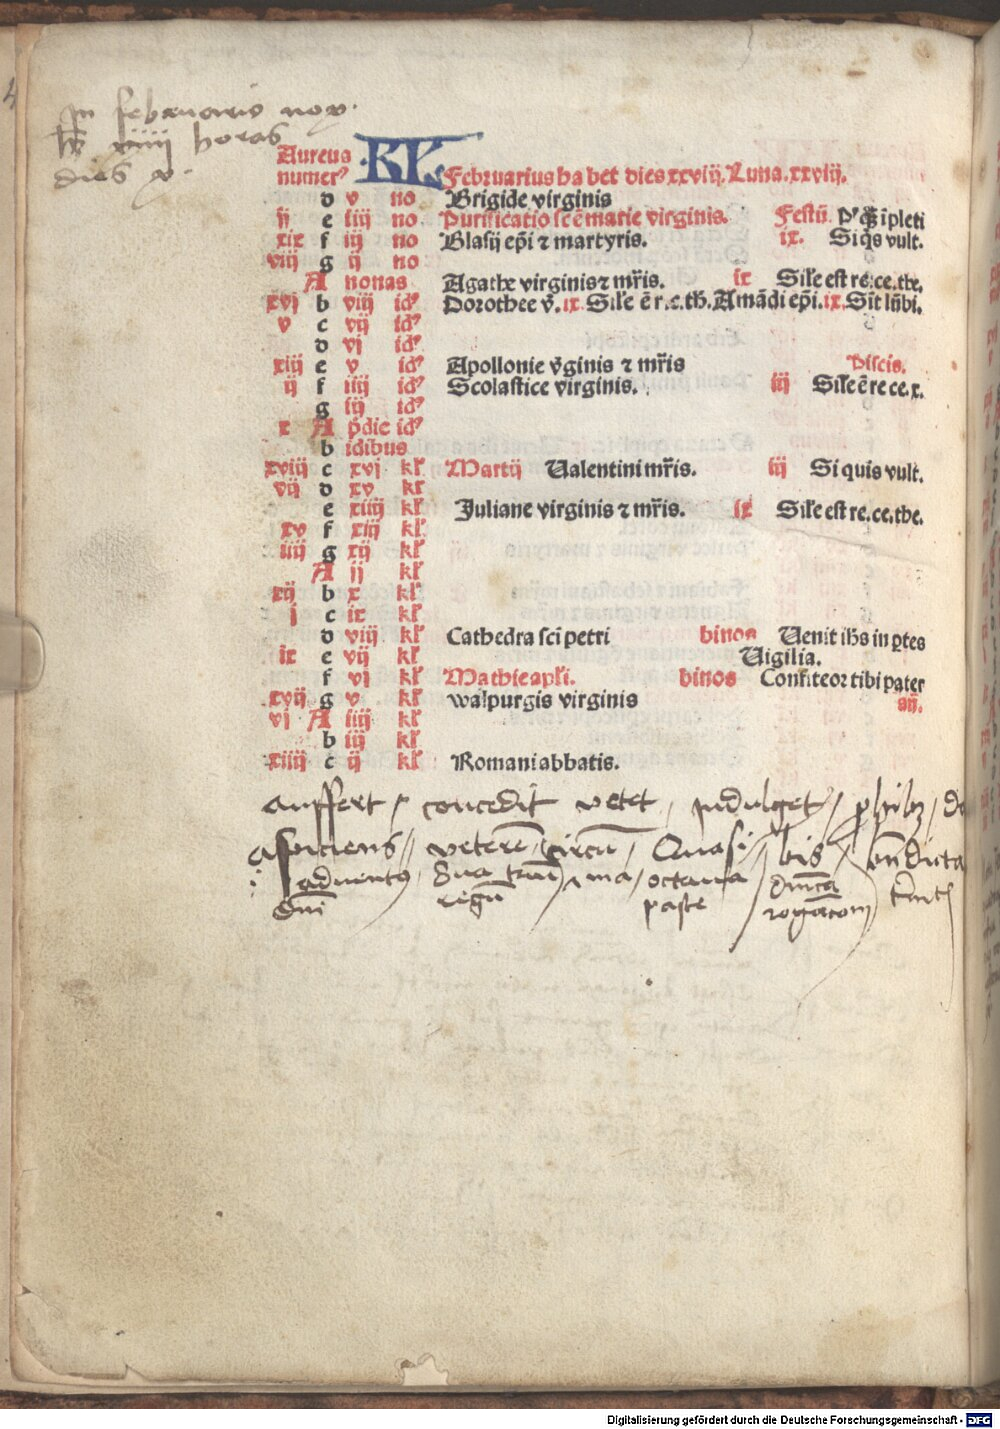 In februario nox
h͡t xviiij horas
dies x.
Aureus
numerꝰ KL Februarius habet dies xxviij. Luna. xxviij.
d v no Brigide virginis
ij e iiij no Purificatio scē marie virginis. Festū. P'qͣ ipleti
xix f iij no Blasij epi ⁊ martyris. ix. Si qs vult.
viij g ij no
A nonas Agathe virginis ⁊ mr̄is. ix Sil'e est re.ce.the.
xvj b viij idꝰ Dorothee v̄. ix. Sil'e ē r.c.th. Amādi epi. ix. Sīt lūbi.
v c vij idꝰ
d vj idꝰ
xiij e v idꝰ Apollonie v̄ginis ⁊ mr̄is Piscis.
ij f iiij idꝰ Scolastice virginis. iij Sil'e ē re ce.x.
g iij idꝰ
x A pridie idꝰ
b idibus
xviij c xvj kl' Martij Valentini mr̄is. iij Si quis vult.
vij d xv kl'
e xiiij kl' Juliane virginis ⁊ mr̄is. ix Sil'e est re.ce.the.
xv f xiij kl'
iiij g xij kl'
A xj kl'
xij b x kl'
j c ix kl'
d viij kl' Cathedra sci petri binos Venit ihs in ꝑtes
ix e vij kl' Vigilia.
f vj kl' Mathie apl'i. binos Confiteor tibi pater
xvij g v kl' walpurgis virginis aij.
vj A iiij kl'
b iij kl'
xiiij c ij kl' Romani abbatis.
auffert / concedit vetet, indulget / ꝓhibꝫ /
aspiciens / veterē / circū / Quasi / bis / bn̄dicta
aduentꝰ / Sua / ma / octaua / dnica
dni regū paste rogacom
Digitalisierung gefördert durch die Deutsche Forschungsgemeinschaft - DFG